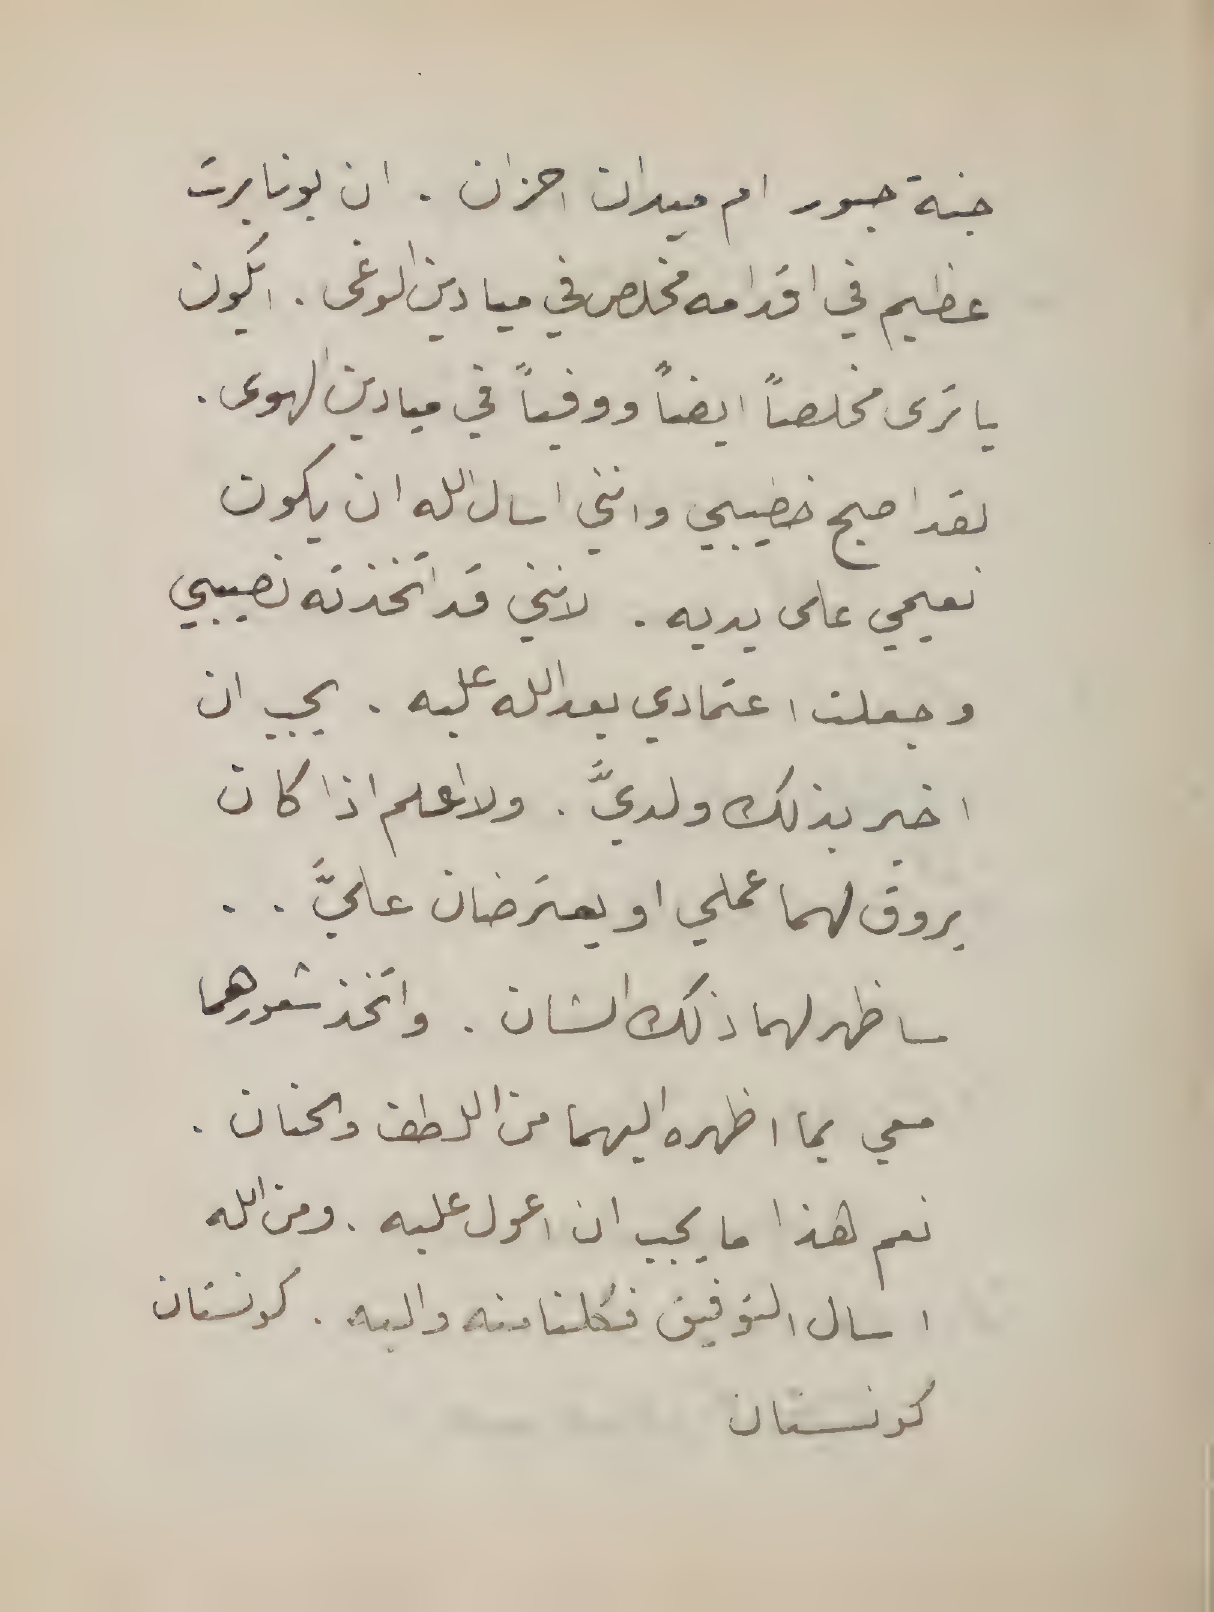 جنة حبور ام ميدان احزان . ان بونابرت
عظيم في اقدامه مخلص في ميادين الوغى . ايكون
يا ترى مخلصاً ايضاً ووفياً في ميادين الهوى .
لقد اصبح خطيبي وانني اسال الله ان يكون
نعيمي على يديه . لانني قد اتخذته نصيبي
وجعلت اعتمادي بعد الله عليه . يجب ان
اخبر بذلك ولديَّ . ولا اعلم اذا كان
يروق لهما عملي او يعترضان عليَّ . .
ساظهر لهما ذلك الشان . واتخذ شعورهما
معي بما اظهره اليهما من اللطف والحنان .
نعم هذا ما يجب ان اعول عليه . ومن الله
اسال التوفيق فكلنا منه واليه . كونستان
كونستان